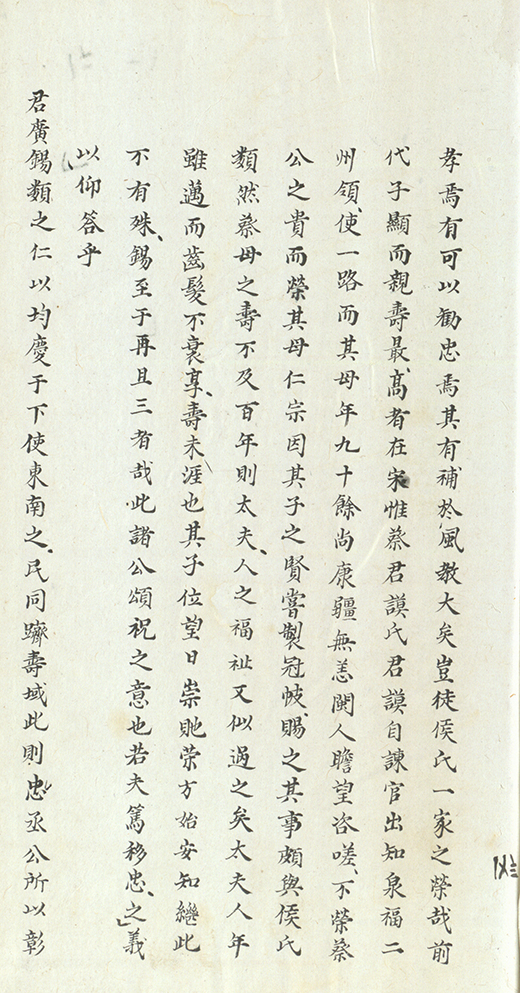 孝焉有可以勸忠焉其有補於風教大矣豈徒侯氏一家之榮哉前
代子顯而親壽最高者在宋惟蔡君謨氏君謨自諫官出知泉福二
州領使一路而其母年九十餘尚康疆無恙閩人瞻望咨嗟不榮蔡
公之貴而榮其母仁宗因其子之賢嘗製冠帔賜之其事頗與侯氏
類然蔡母之壽不及百年則太夫人之福祉又似過之矣太夫人年
雖邁而齒髮不衰享壽未涯也其子位望日崇貤荣方始安知繼此
不有殊錫至于再且三者哉此諸公頌祝之意也若夫篤移忠之義
以仰答乎
君廣錫類之仁以均慶于下使東南之民同躋壽域此則忠丞公所以彰